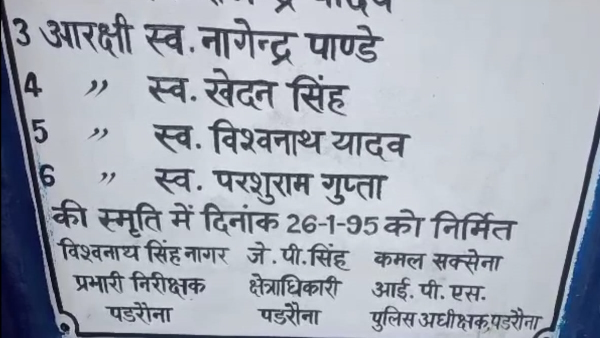 3 आरक्षी स्व. नागेन्द्र पाण्डे
4 " स्व. खेदन सिंह
5 " स्व. विश्वनाथ यादव
6 " स्व. परशुराम गुप्ता
की स्मृति में दिनांक 26-1-95 को निर्मित
विश्वनाथ सिंह नागर जे. पी. सिंह कमल सक्सेना
प्रभारी निरीक्षक क्षेत्राधिकारी आई. पी. एस.
पडरौना पडरौना पुलिस अधीक्षक, पडरौना